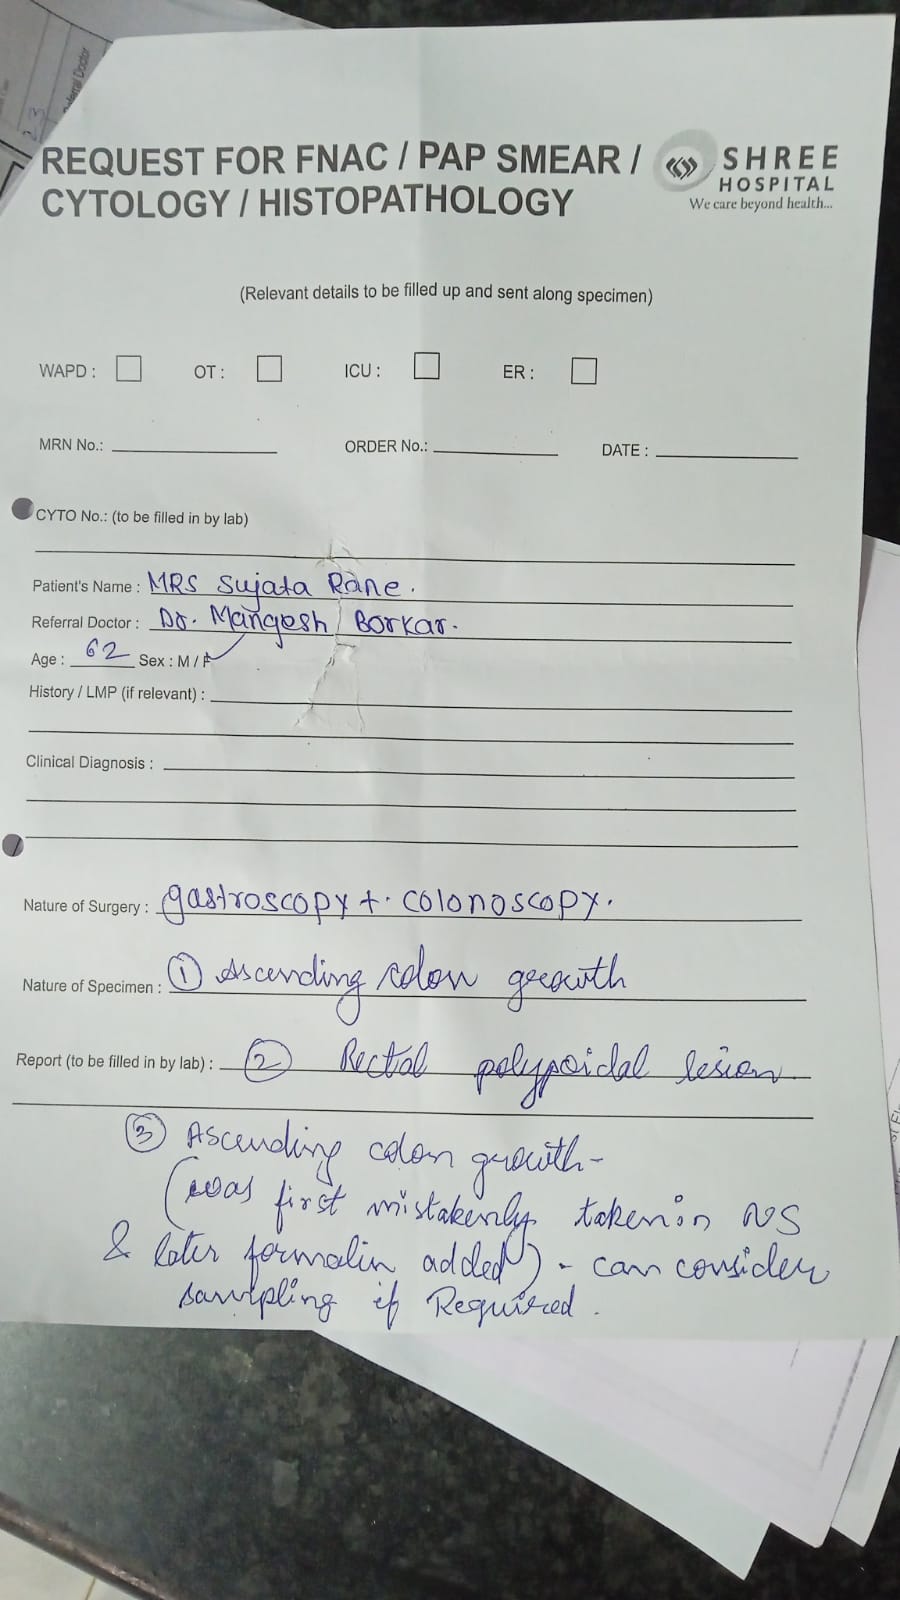 REQUEST FOR FNAC / PAP SMEAR /
CYTOLOGY / HISTOPATHOLOGY
SHREE
HOSPITAL
We care beyond health...
(Relevant details to be filled up and sent along specimen)
WAPD : OT : ICU : ER :
MRN No.: ORDER No.: DATE :
CYTO No.: (to be filled in by lab)
Patient's Name : MRS Sujata Rane.
Referral Doctor : Dr. Mangesh Borkar.
Age : 62 Sex : M / F
History / LMP (if relevant) :
Clinical Diagnosis :
Nature of Surgery : gastroscopy + colonoscopy.
Nature of Specimen : ① Ascending colon growth
Report (to be filled in by lab) : ② Rectal polypoidal lesion
③ Ascending colon growth-
(was first mistakenly taken in NS
& later formalin added) - can consider
sampling if Required.